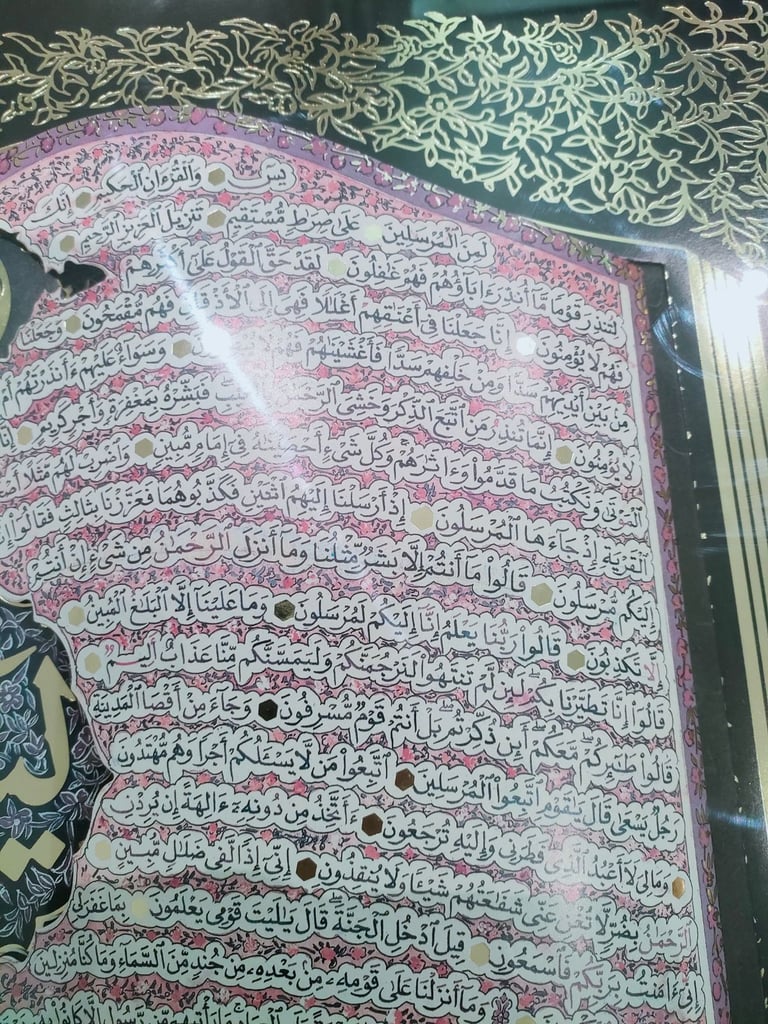 يسٓ وَٱلْقُرْءَانِ ٱلْحَكِيمِ إِنَّكَ
لَمِنَ ٱلْمُرْسَلِينَ عَلَىٰ صِرَٰطٍ مُّسْتَقِيمٍ تَنزِيلَ ٱلْعَزِيزِ ٱلرَّحِيمِ
لِتُنذِرَ قَوْمًا مَّآ أُنذِرَ ءَابَآؤُهُمْ فَهُمْ غَٰفِلُونَ لَقَدْ حَقَّ ٱلْقَوْلُ عَلَىٰٓ أَكْثَرِهِمْ
فَهُمْ لَا يُؤْمِنُونَ إِنَّا جَعَلْنَا فِىٓ أَعْنَٰقِهِمْ أَغْلَٰلًا فَهِىَ إِلَى ٱلْأَذْقَانِ فَهُم مُّقْمَحُونَ وَجَعَلْنَا
مِنۢ بَيْنِ أَيْدِيهِمْ سَدًّا وَمِنْ خَلْفِهِمْ سَدًّا فَأَغْشَيْنَٰهُمْ فَهُمْ وَسَوَآءٌ عَلَيْهِمْ ءَأَنذَرْتَهُمْ أَمْ
لَا يُؤْمِنُونَ إِنَّمَا تُنذِرُ مَنِ ٱتَّبَعَ ٱلذِّكْرَ وَخَشِىَ ٱلرَّحْمَٰنَ بِٱلْغَيْبِ فَبَشِّرْهُ بِمَغْفِرَةٍ وَأَجْرٍ كَرِيمٍ إِنَّا
ٱلْمَوْتَىٰ وَنَكْتُبُ مَا قَدَّمُوا۟ وَءَاثَٰرَهُمْ وَكُلَّ شَىْءٍ أَحْصَيْنَٰهُ فِىٓ إِمَامٍ مُّبِينٍ وَٱضْرِبْ لَهُم مَّثَلًا
ٱلْقَرْيَةِ إِذْ جَآءَهَا ٱلْمُرْسَلُونَ إِذْ أَرْسَلْنَآ إِلَيْهِمُ ٱثْنَيْنِ فَكَذَّبُوهُمَا فَعَزَّزْنَا بِثَالِثٍ فَقَالُوٓا۟
إِلَيْكُم مُّرْسَلُونَ قَالُوا۟ مَآ أَنتُمْ إِلَّا بَشَرٌ مِّثْلُنَا وَمَآ أَنزَلَ ٱلرَّحْمَٰنُ مِن شَىْءٍ إِنْ أَنتُمْ
إِلَّا تَكْذِبُونَ قَالُوا۟ رَبُّنَا يَعْلَمُ إِنَّآ إِلَيْكُمْ لَمُرْسَلُونَ وَمَا عَلَيْنَآ إِلَّا ٱلْبَلَٰغُ ٱلْمُبِينُ
قَالُوٓا۟ إِنَّا تَطَيَّرْنَا بِكُمْ لَئِن لَّمْ تَنتَهُوا۟ لَنَرْجُمَنَّكُمْ وَلَيَمَسَّنَّكُم مِّنَّا عَذَابٌ أَلِيمٌ
قَالُوا۟ طَٰٓئِرُكُم مَّعَكُمْ أَئِن ذُكِّرْتُم بَلْ أَنتُمْ قَوْمٌ مُّسْرِفُونَ وَجَآءَ مِنْ أَقْصَا ٱلْمَدِينَةِ
رَجُلٌ يَسْعَىٰ قَالَ يَٰقَوْمِ ٱتَّبِعُوا۟ ٱلْمُرْسَلِينَ ٱتَّبِعُوا۟ مَن لَّا يَسْـَٔلُكُمْ أَجْرًا وَهُم مُّهْتَدُونَ
وَمَا لِىَ لَآ أَعْبُدُ ٱلَّذِى فَطَرَنِى وَإِلَيْهِ تُرْجَعُونَ ءَأَتَّخِذُ مِن دُونِهِۦٓ ءَالِهَةً إِن يُرِدْنِ
ٱلرَّحْمَٰنُ بِضُرٍّ لَّا تُغْنِ عَنِّى شَفَٰعَتُهُمْ شَيْـًٔا وَلَا يُنقِذُونِ إِنِّىٓ إِذًا لَّفِى ضَلَٰلٍ مُّبِينٍ
إِنِّىٓ ءَامَنتُ بِرَبِّكُمْ فَٱسْمَعُونِ قِيلَ ٱدْخُلِ ٱلْجَنَّةَ قَالَ يَٰلَيْتَ قَوْمِى يَعْلَمُونَ بِمَا غَفَرَ لِى
وَمَآ أَنزَلْنَا عَلَىٰ قَوْمِهِۦ مِنۢ بَعْدِهِۦ مِن جُندٍ مِّنَ ٱلسَّمَآءِ وَمَا كُنَّا مُنزِلِينَ